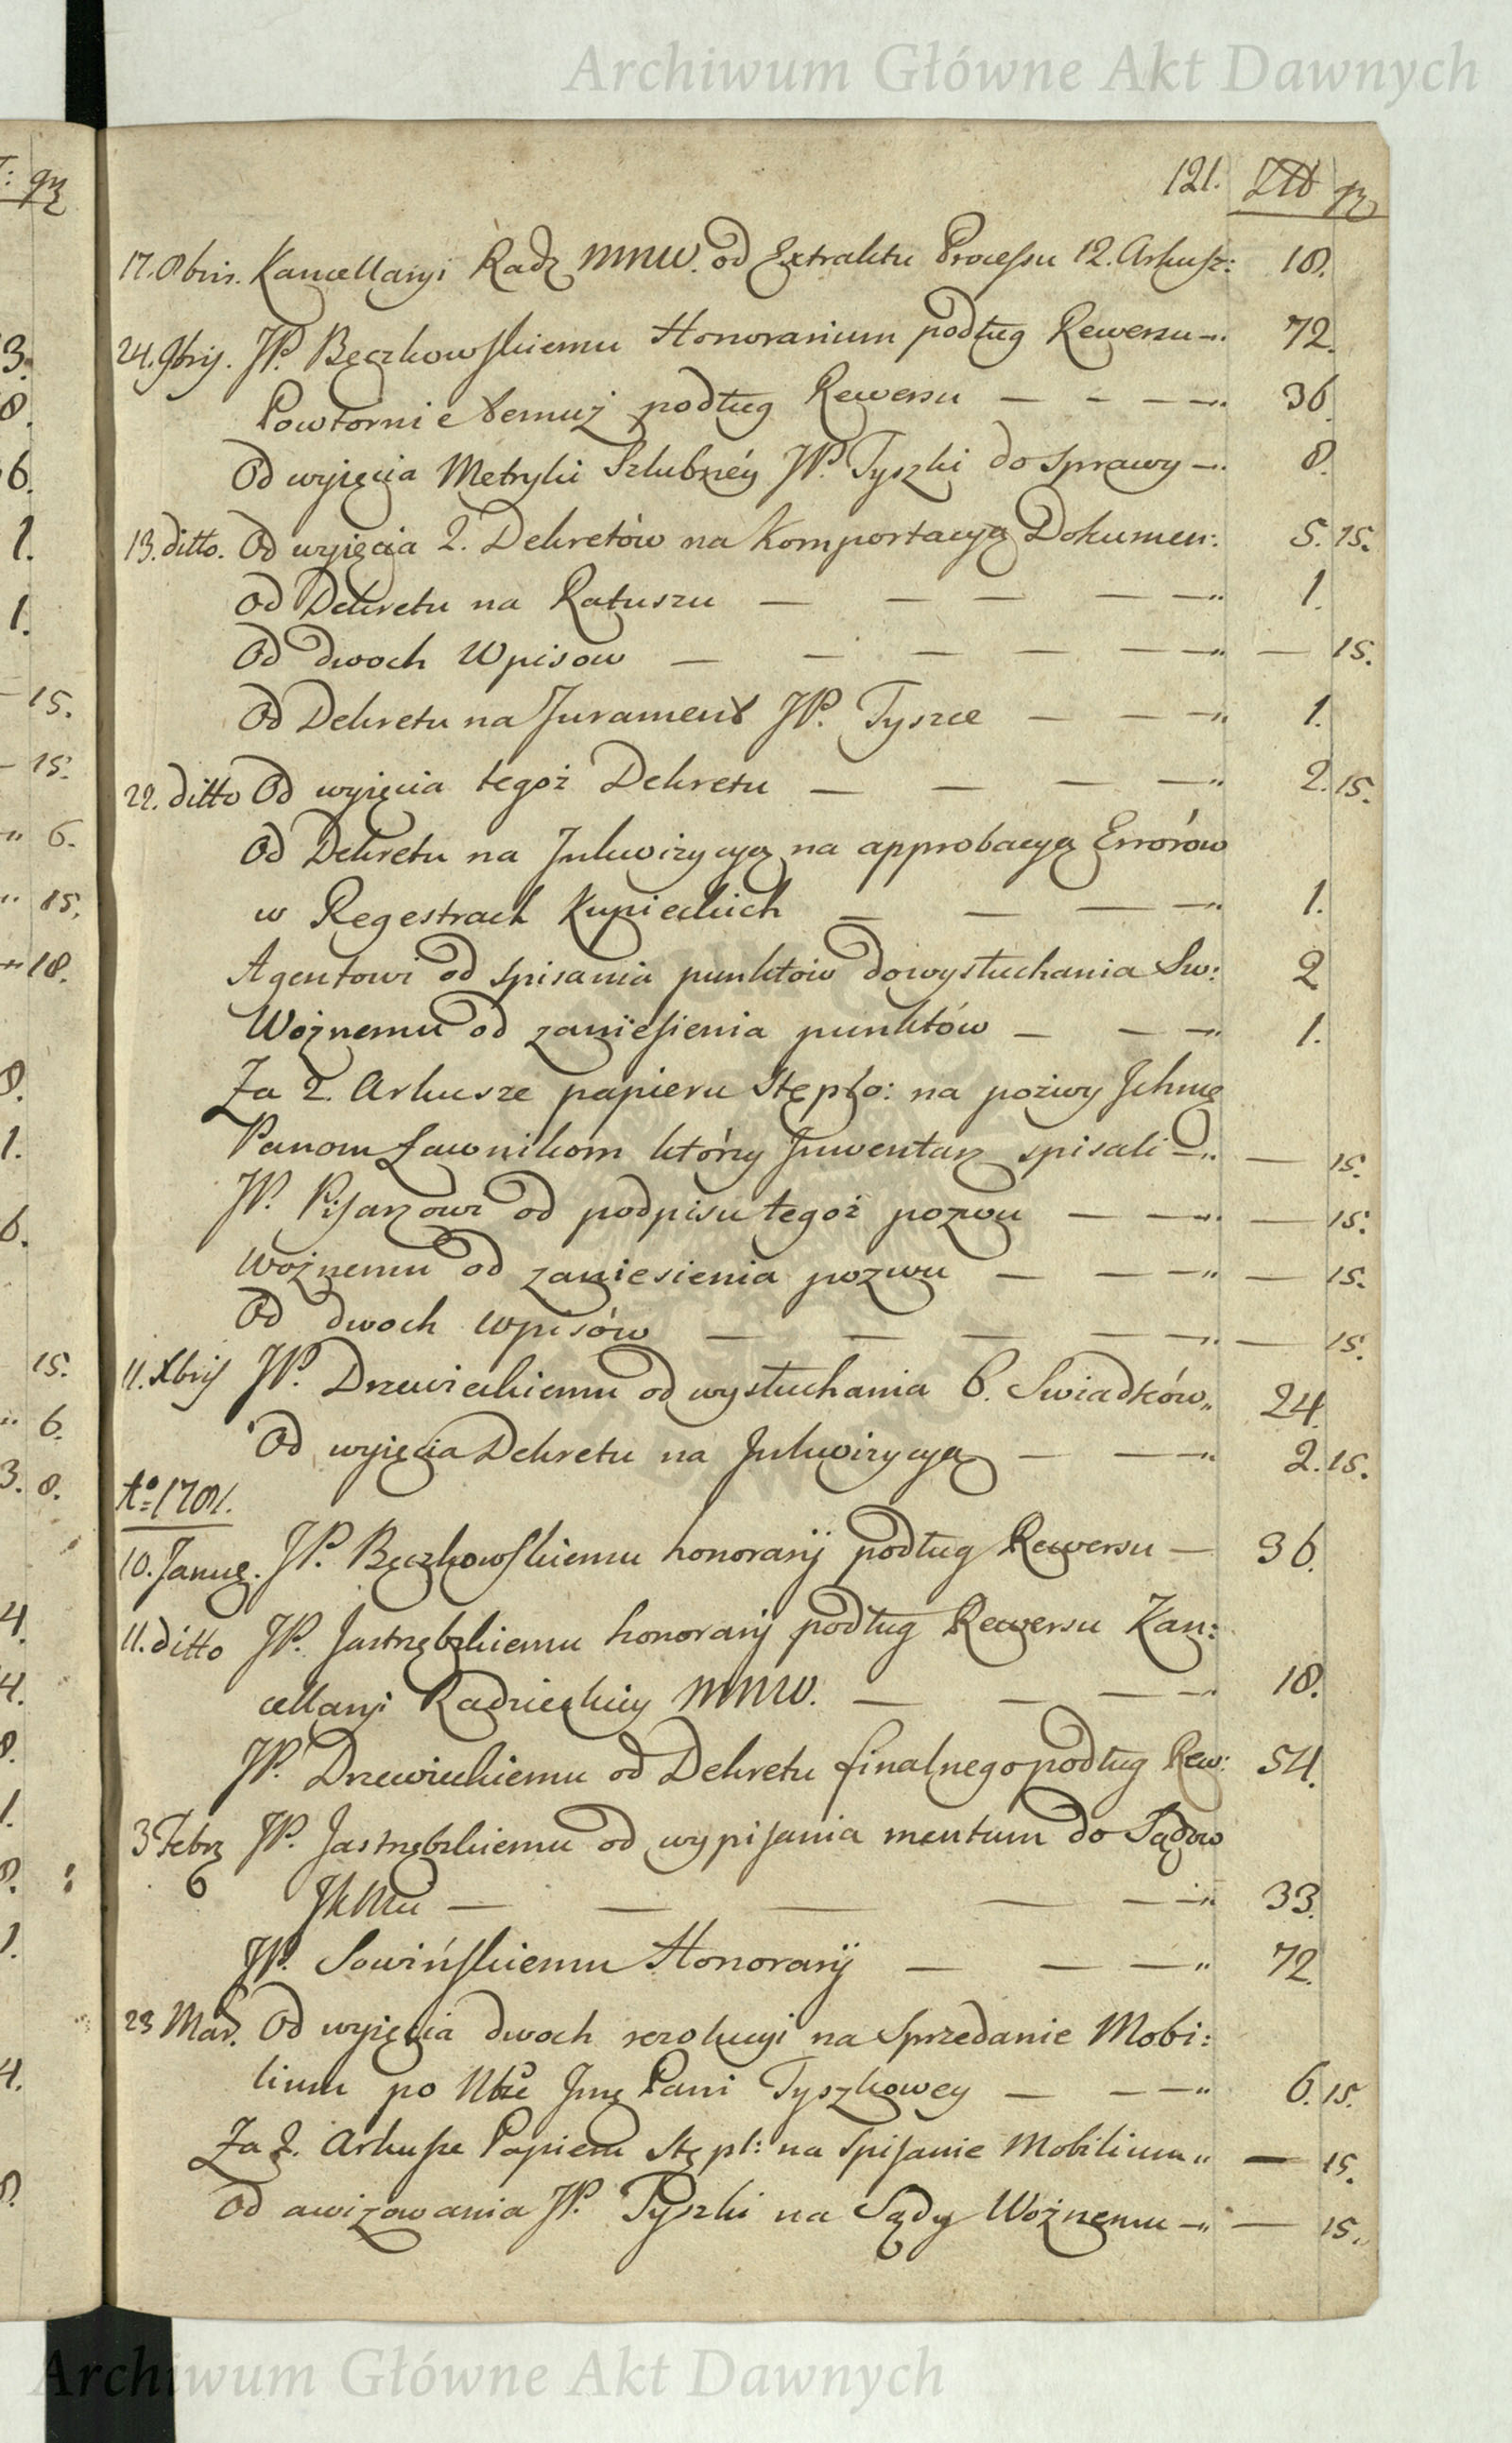 Archiwum Główne Akt Dawnych
121. Złł gr
17. 8bris. Kancellaryi Radz MMW. od Extraktu Processu 12. Arkusz: 18.
24. 9bris. JP. Bęczkowskiemu Honorarium podług Rewersu 72.
Powtornie temuż podług Rewersu — — — 36.
Od wyięcia Metryki Szlubnéy JP. Tyszki do Sprawy — 8.
13. ditto. Od wyięcia 2. Dekretów na Komportacyą Dokumen: 5. 15.
Od Dekretu na Ratuszu — — — — — 1.
Od dwoch Wpisow — — — — — — — 15.
Od Dekretu na Jurament JP. Tyszce — — — 1.
22. ditto Od wyięcia tegoż Dekretu — — — — 2. 15.
Od Dekretu na Inkwizycyą na approbacyą Errorów
w Regestrach Kupieckich — — — — 1.
Agentowi od spisania punktów do wysłuchania Sw: 2
Woźnemu od zaniesienia punktów — — — 1.
Za 2. Arkusze papieru Stęplo: na pozwy Ichmę
Panom Ławnikom którzy Inwentarz spisali — — 15.
JP. Pisarzowi od podpisu tegoż pozwu — — — 15.
Woźnemu od zaniesienia pozwu — — — — 15.
Od dwoch wpisów — — — — — — 15.
11. Xbris JP. Drzewieckiemu od wysłuchania 6. Swiadków 24.
Od wyięcia Dekretu na Inkwizycyą — — — 2. 15.
Ao 1781.
10. Janua. JP. Bęczkowskiemu honorarij podług Rewersu — 36.
11. ditto JP. Jastrzębskiemu honorarij podług Rewersu Kan:
cellaryi Radzieckiey MMW. — — — — 18.
JP. Drzewieckiemu od Dekretu finalnego podług Rew: 54.
3 Febr JP. Jastrzębskiemu od wypisania mentum do Sądow
6 JKMci — — — — — 33.
JP. Sowińskiemu Honorarij — — — 72.
23 Mar. Od wyięcia dwoch rezolucyi na Sprzedanie Mobi:
lium po Nbże Jmę Pani Tyszkowey — — — 6. 15.
Za 2. Arkusze Papieru Stępl: na spisanie Mobilium — 15.
Od awizowania JP. Tyszki na Sądy Woźnemu — — 15.
Archiwum Główne Akt Dawnych